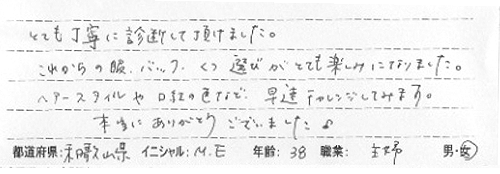 とても丁寧に診断して頂けました。
これからの服、バック、くつ選びがとても楽しみになりました。
ヘアースタイルや口紅の色など、早速チャレンジしてみます。
本当にありがとうございました♪
都道府県:和歌山県 イニシャル:M.E 年齢:38 職業: 主婦 男・女